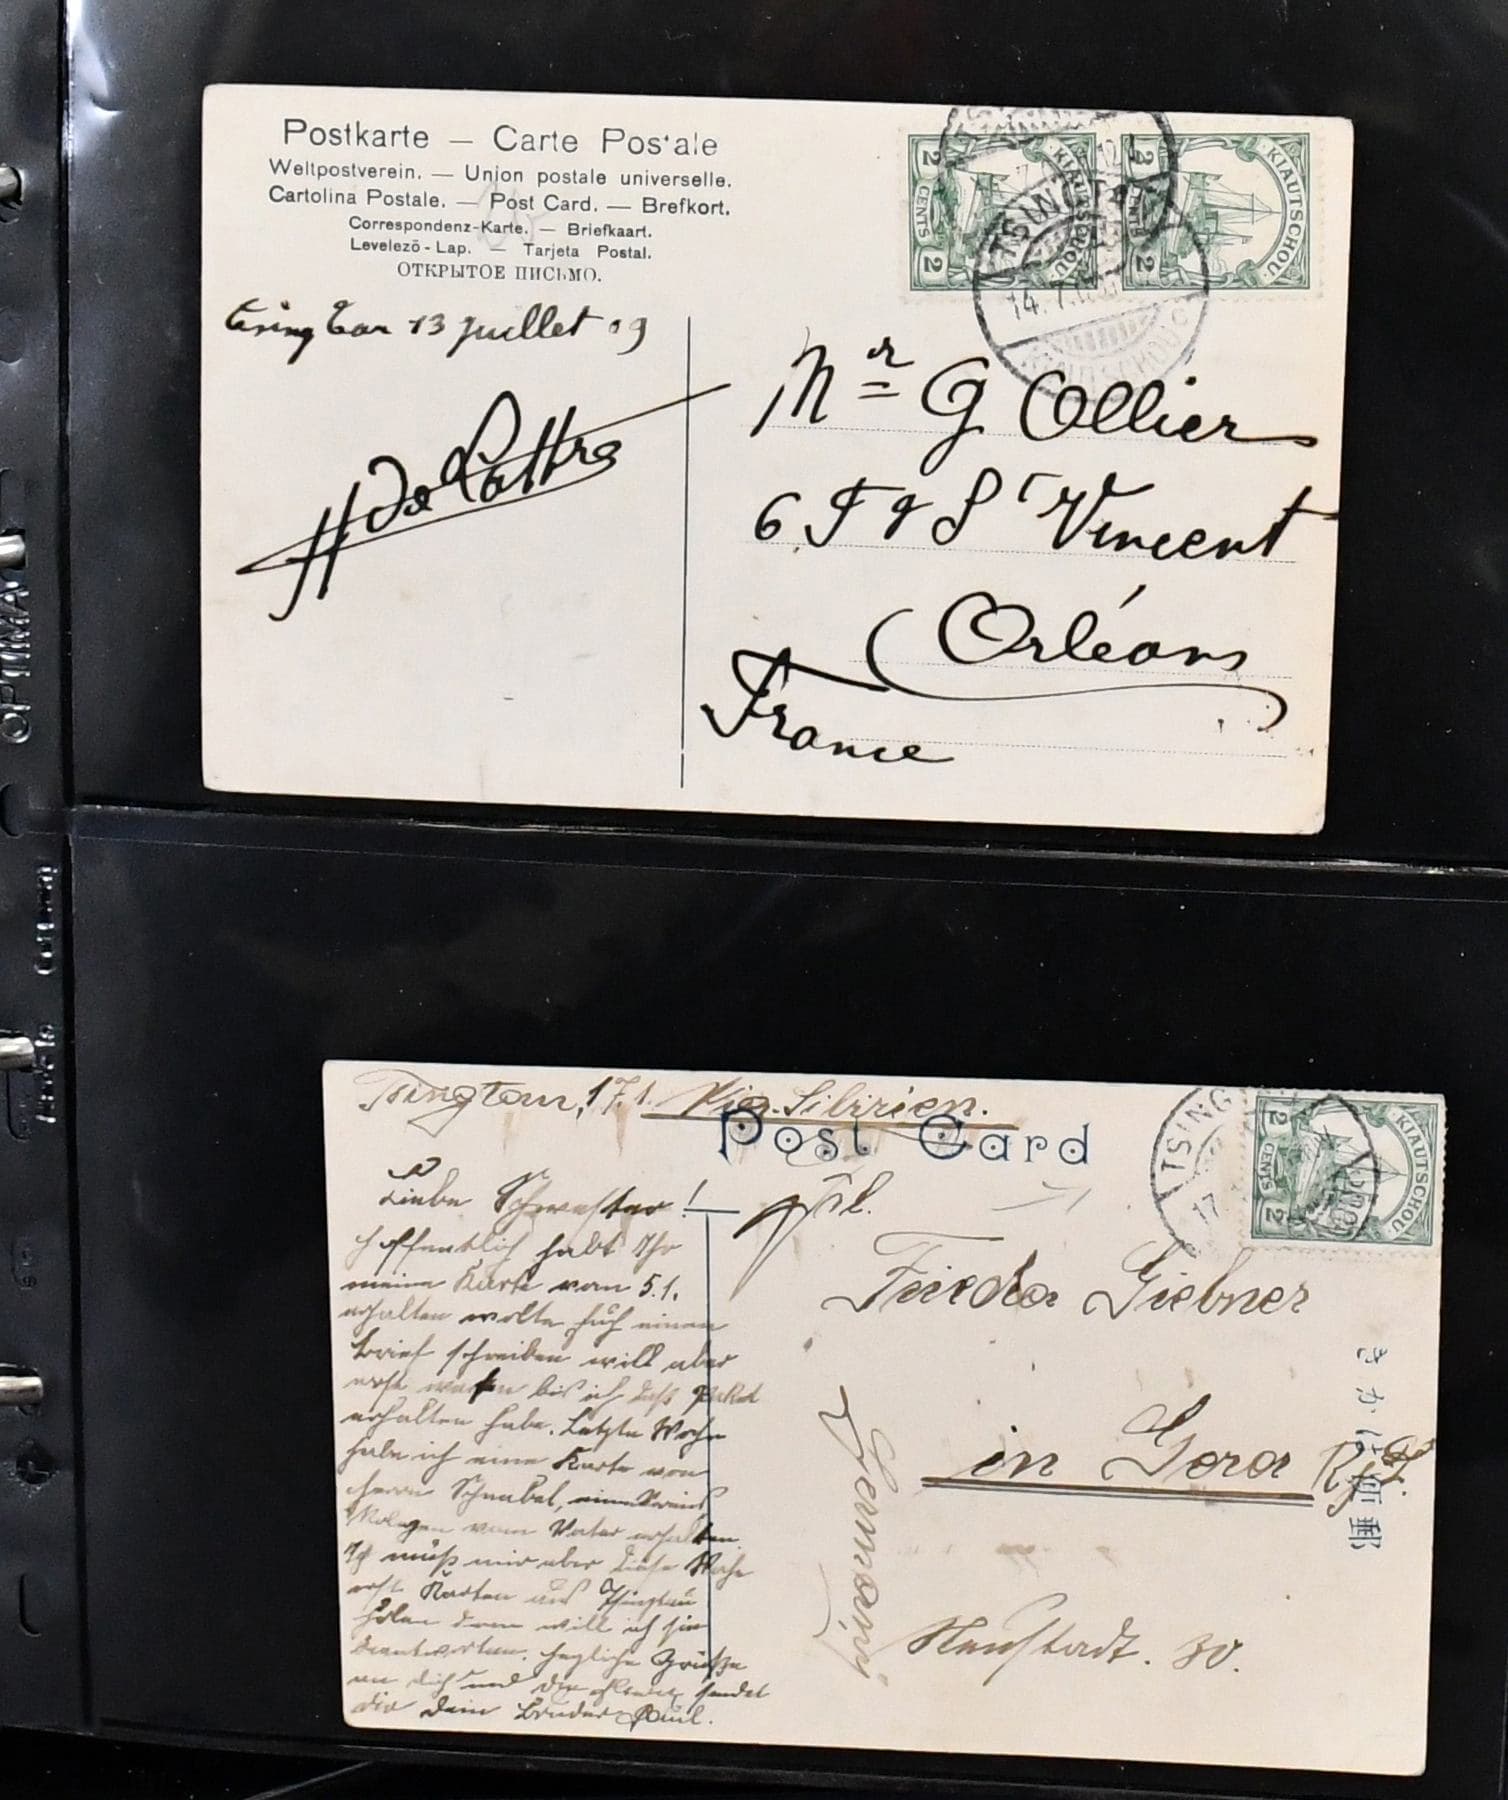 Postkarte — Carte Postale
Weltpostverein. — Union postale universelle.
Cartolina Postale. — Post Card. — Brefkort.
Correspondenz-Karte. — Briefkaart.
Levelező-Lap. — Tarjeta Postal.
ОТКРЫТОЕ ПИСЬМО.
Tsing Tau 13 juillet 09
H de Lattre
2 CENTS 2 KIAUTSCHOU
2 CENTS 2 KIAUTSCHOU
TSINGTAU
14.7.
KIAUTSCHOU
Mr G Ollier
6 F g St Vincent
Orléans
France
OPTIMA
Tsingtau, 17.1. Via Sibirien.
Post Card
Liebe Schwester!
hoffentlich habt Ihr
meine Karte vom 5.1.
erhalten wollte Euch einen
Brief schreiben will aber
erst warten bis ich das Paket
erhalten habe. Letzte Woche
habe ich eine Karte von
Herrn Schnabel,
Kolegen vom Vater erhalten
Ich muß mir aber diese Woche
erst Karten aus Tsingtau
holen dann will ich sie
beantworten. Herzliche Grüße
an dich und sendet
dir dein Bruder Paul.
TSING
17
2 CENTS 2 KIAUTSCHOU
Frl.
Frieda Giebner
in Gera R.j.L.
Germany
Neustadt. 30.
きかは便郵